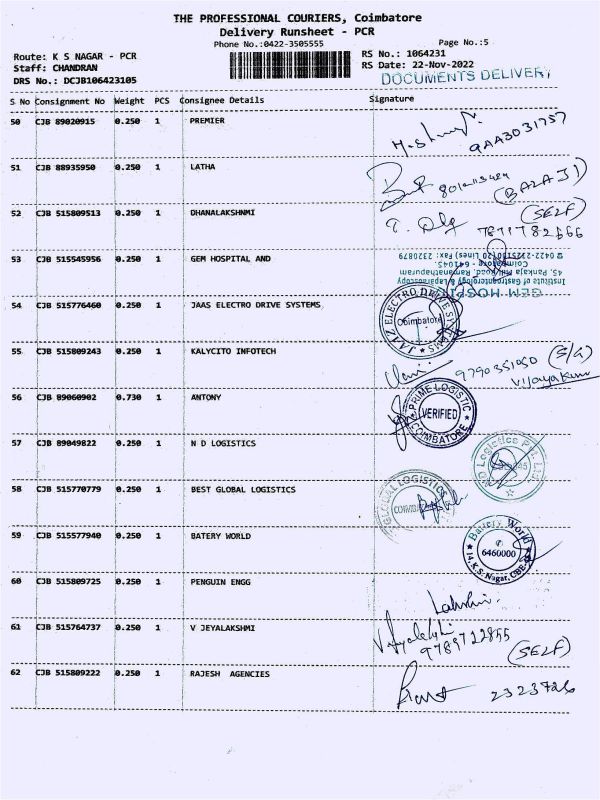 THE PROFESSIONAL COURIERS, Coimbatore
Delivery Runsheet - PCR
Phone No.:0422-3505555
Page No.:5
Route: K S NAGAR - PCR
RS No.: 1064231
Staff: CHANDRAN
RS Date: 22-Nov-2022
DRS No.: DCJB106423105
DOCUMENTS DELIVERY
S No Consignment No Weight PCS Consignee Details Signature
50 CJB 89020915 0.250 1 PREMIER
51 CJB 88935950 0.250 1 LATHA
(BALAJI)
52 CJB 515809513 0.250 1 DHANALAKSHNMI
(SELF)
7871782666
53 CJB 515545956 0.250 1 GEM HOSPITAL AND
GEM HOSP
Institute of Gastroenterology & Laparoscopy
45, Pankaja Mill Road, Ramanathapuram
Coimbatore - 641045.
54 CJB 515776460 0.250 1 JAAS ELECTRO DRIVE SYSTEMS
JAIZ ELECTRO DRIVE SYSTEMS
Coimbatore
55 CJB 515809243 0.250 1 KALYCITO INFOTECH
9790351050 (S/G)
Vijayakum
56 CJB 89060902 0.730 1 ANTONY
PRIME LOGISTIC
VERIFIED
COIMBATORE
57 CJB 89049822 0.250 1 N D LOGISTICS
ND Logistics Pvt. Ltd.
58 CJB 515770779 0.250 1 BEST GLOBAL LOGISTICS
GLOBAL LOGISTICS
59 CJB 515577940 0.250 1 BATERY WORLD
Batery World
6460000
14, K.S. Nagar, CBE
60 CJB 515809725 0.250 1 PENGUIN ENGG
Lakshmi
61 CJB 515764737 0.250 1 V JEYALAKSHMI
9789712855
(SELF)
62 CJB 515809222 0.250 1 RAJESH AGENCIES
2323726